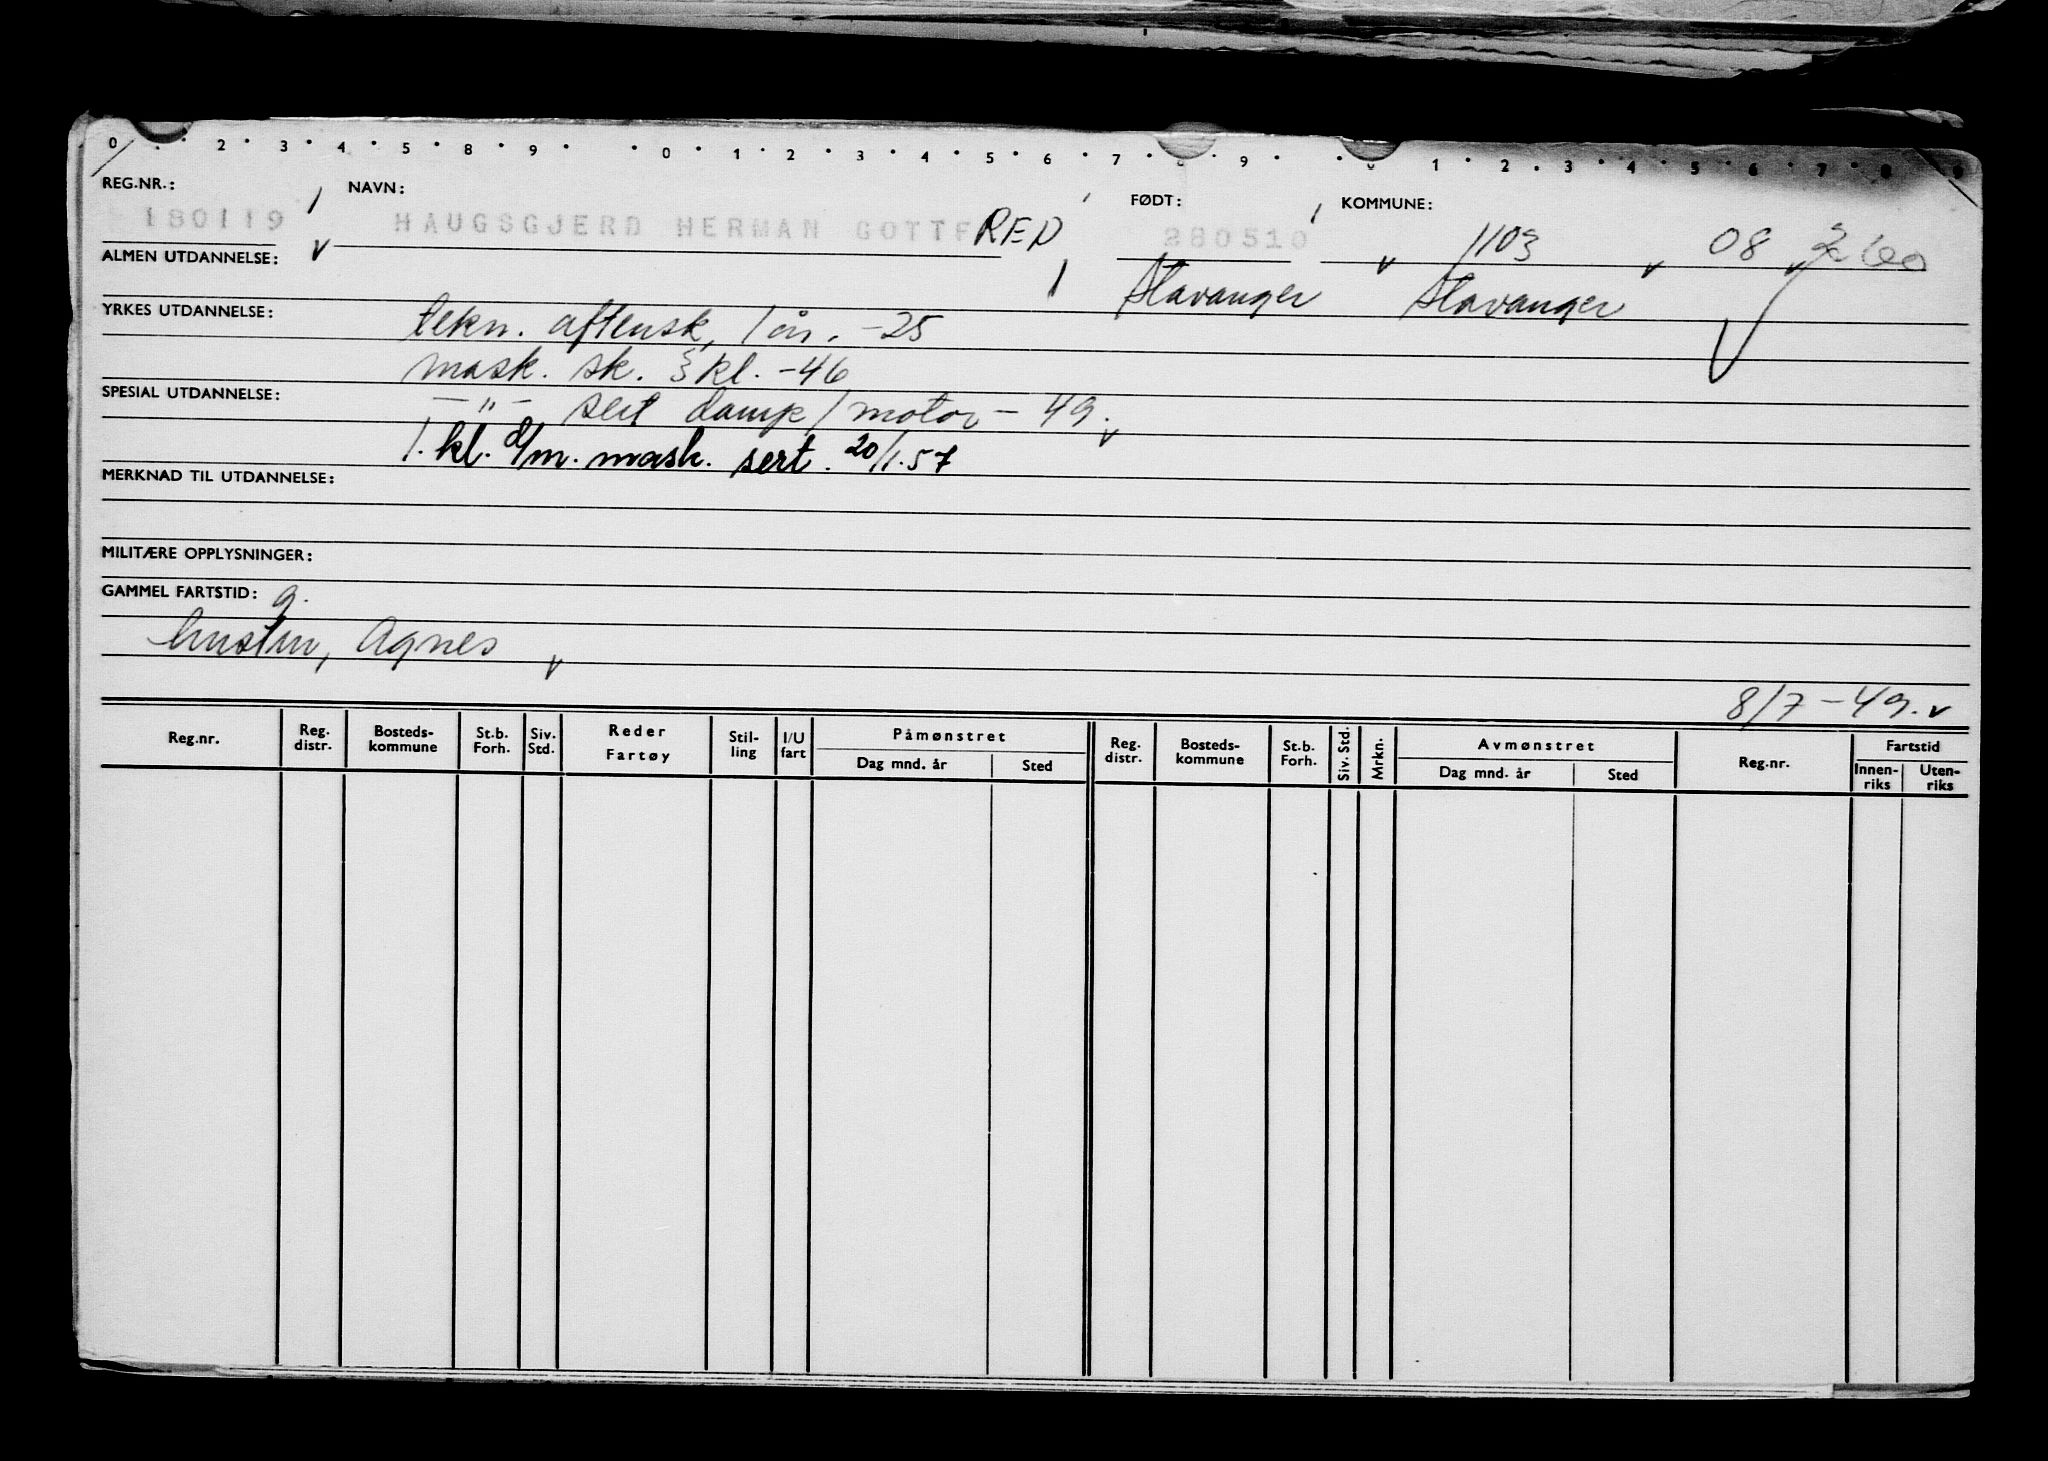 0 · · 2 · 3 · 4 · 5 · 8 · 9 · · 0 · 1 · 2 · 3 · 4 · 5 · 6 · 7 · 9 · · 1 · 2 · 3 · 4 · 5 · 6 · 7 · 8 · 9
REG.NR.: NAVN: FØDT: KOMMUNE:
180119 HAUGSGJERD HERMAN GOTTFRED 280510 1103 08
ALMEN UTDANNELSE: Stavanger Stavanger
YRKES UTDANNELSE: tekn. aftensk, 1 år. -25
mask. sk. 3 kl. -46
SPESIAL UTDANNELSE: — " — sert damp/motor - 49.
1. kl. d/m. mask. sert. 20/1.57
MERKNAD TIL UTDANNELSE:
MILITÆRE OPPLYSNINGER:
GAMMEL FARTSTID:
g.
hustru, Agnes
8/7 - 49.
Reg.nr. Reg. distr. Bosteds-kommune St.b. Forh. Siv. Std. Reder Fartøy Stil-ling I/U fart Påmønstret Dag mnd. år Sted Reg. distr. Bosteds-kommune St.b. Forh. Siv. Std. Mrkn. Avmønstret Dag mnd. år Sted Reg.nr. Fartstid Innen-riks Uten-riks